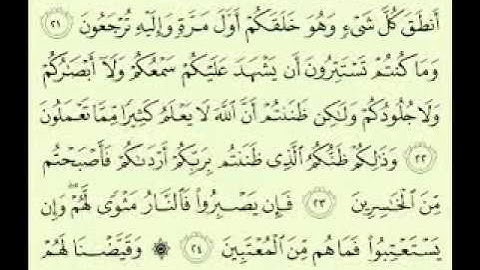 أَنطَقَ كُلَّ شَىْءٍ وَهُوَ خَلَقَكُمْ أَوَّلَ مَرَّةٍ وَإِلَيْهِ تُرْجَعُونَ ٢١
وَمَا كُنتُمْ تَسْتَتِرُونَ أَن يَشْهَدَ عَلَيْكُمْ سَمْعُكُمْ وَلَآ أَبْصَٰرُكُمْ
وَلَا جُلُودُكُمْ وَلَٰكِن ظَنَنتُمْ أَنَّ ٱللَّهَ لَا يَعْلَمُ كَثِيرًا مِّمَّا تَعْمَلُونَ
٢٢ وَذَٰلِكُمْ ظَنُّكُمُ ٱلَّذِى ظَنَنتُم بِرَبِّكُمْ أَرْدَىٰكُمْ فَأَصْبَحْتُم
مِّنَ ٱلْخَٰسِرِينَ ٢٣ فَإِن يَصْبِرُوا۟ فَٱلنَّارُ مَثْوًى لَّهُمْ ۖ وَإِن
يَسْتَعْتِبُوا۟ فَمَا هُم مِّنَ ٱلْمُعْتَبِينَ ٢٤ ۞ وَقَيَّضْنَا لَهُمْ